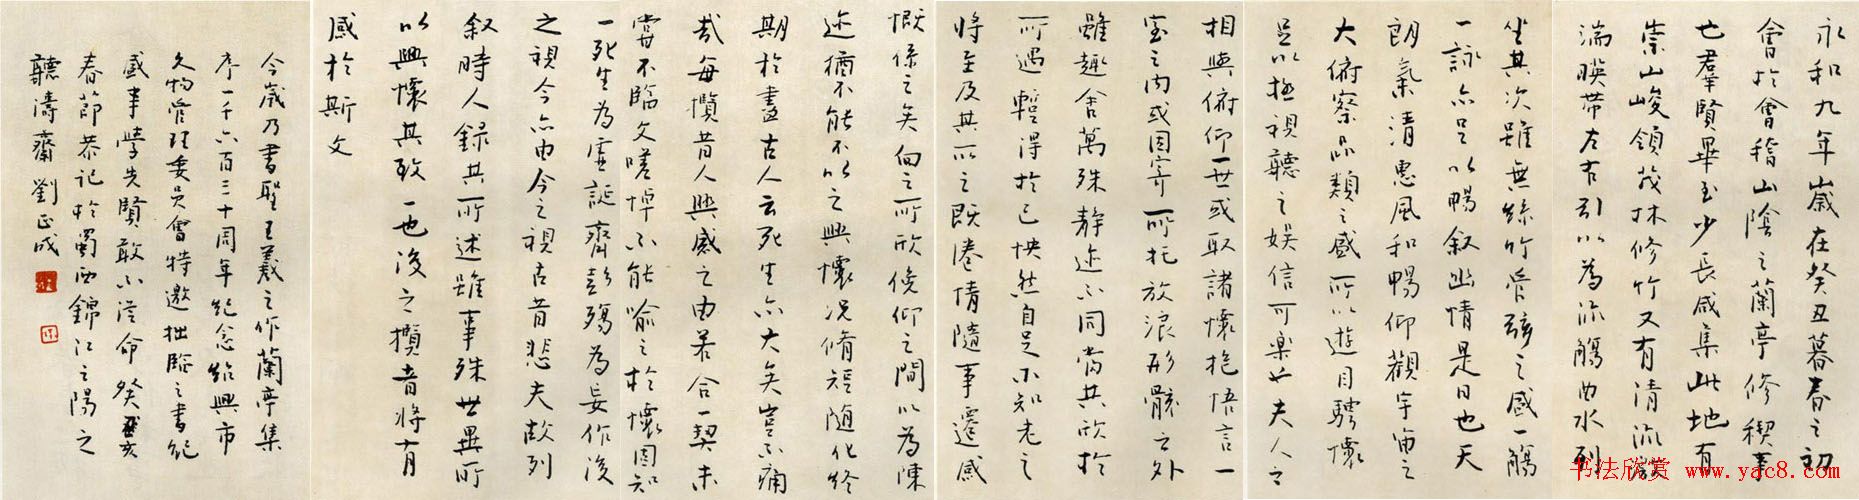 永和九年歲在癸丑暮春之初
會於會稽山陰之蘭亭修稧事
也羣賢畢至少長咸集此地有
崇山峻領茂林修竹又有清流激
湍暎帶左右引以為流觴曲水列
坐其次雖無絲竹管弦之盛一觴
一詠亦足以暢叙幽情是日也天
朗氣清惠風和暢仰觀宇宙之
大俯察品類之盛所以遊目騁懷
足以極視聽之娛信可樂也夫人之
相與俯仰一世或取諸懷抱悟言一
室之內或因寄所托放浪形骸之外
雖趣舍萬殊靜躁不同當其欣於
所遇暫得於己快然自足不知老之
將至及其所之既倦情隨事遷感
慨係之矣向之所欣俛仰之間以為陳
迹猶不能不以之興懷況脩短随化終
期於盡古人云死生亦大矣豈不痛
哉每攬昔人興感之由若合一契未
嘗不臨文嗟悼不能喻之於懷固知
一死生為虛誕齊彭殤為妄作後
之視今亦由今之視古昔悲夫故列
叙時人録其所述雖事殊世異所
以興懷其致一也後之攬者將有
感於斯文
今歲乃書聖王羲之作蘭亭集
序一千六百三十周年紀念紹興市
文物管理委員會特邀拙臨之書紀
盛事學先賢敢不從命癸亥
春節恭記於蜀西錦江之陽之
聽濤齋劉正成
书法欣赏 www.yac8.com